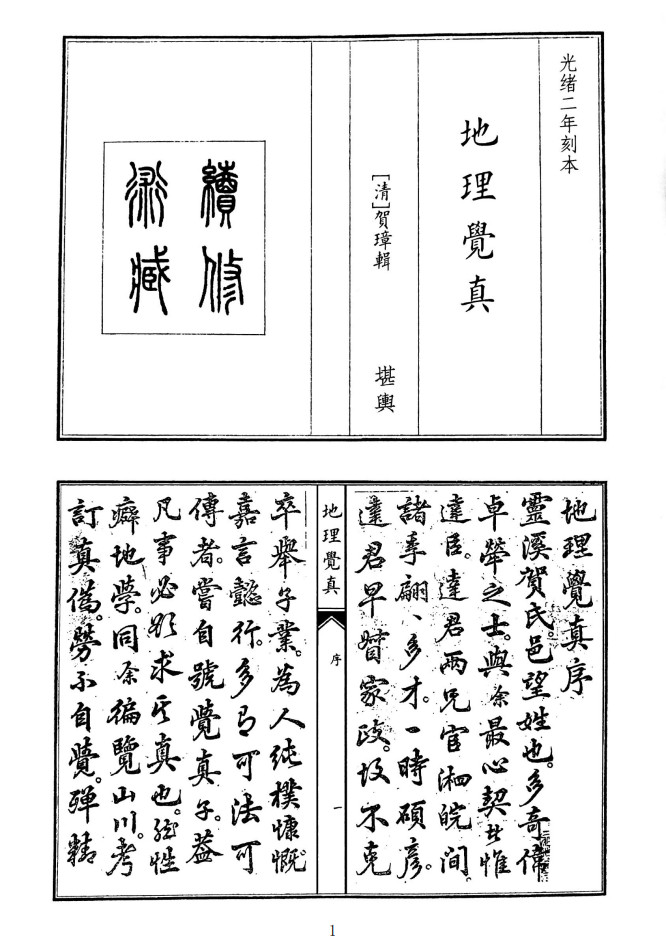 光绪二年刻本
地理覺真
[清]賀璋輯 堪輿
續修
術藏
地理覺真序
靈溪賀氏。邑望姓也。多奇偉
卓犖之士。與余最心契者惟
達臣。達君兩兄官湘皖間。
諸季翩、多才。一時碩彥。
達君早督家政。故不克
地理覺真 序 一
卒舉子業。為人純樸慷慨。
嘉言懿行。多有可法可
傳者。嘗自號覺真子。蓋
凡事必欲求其真也。然性
癖地學。同余徧覽山川。考
訂真偽。勞不自覺。殫精
1